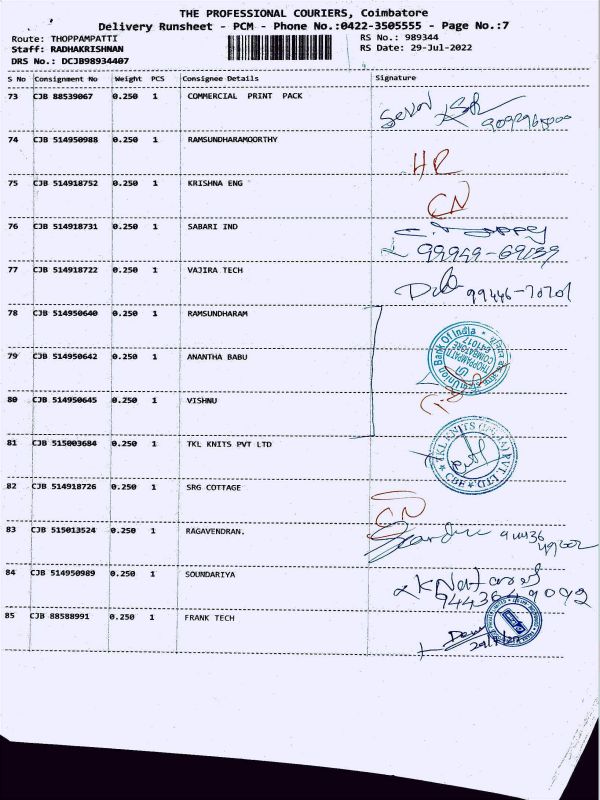 THE PROFESSIONAL COURIERS, Coimbatore
Delivery Runsheet - PCM - Phone No.:0422-3505555 - Page No.:7
Route: THOPPAMPATTI RS No.: 989344
Staff: RADHAKRISHNAN RS Date: 29-Jul-2022
DRS No.: DCJB98934407
S No Consignment No Weight PCS Consignee Details Signature
73 CJB 88539067 0.250 1 COMMERCIAL PRINT PACK
74 CJB 514950988 0.250 1 RAMSUNDHARAMOORTHY
HR
75 CJB 514918752 0.250 1 KRISHNA ENG
CN
76 CJB 514918731 0.250 1 SABARI IND
77 CJB 514918722 0.250 1 VAJIRA TECH
99446-70701
78 CJB 514950640 0.250 1 RAMSUNDHARAM
79 CJB 514950642 0.250 1 ANANTHA BABU
Union Bank Of India
THOPPAMPATTI
COIMBATORE
641017
80 CJB 514950645 0.250 1 VISHNU
81 CJB 515003684 0.250 1 TKL KNITS PVT LTD
TKL KNITS (INDIA) PVT. LTD.
CBE
82 CJB 514918726 0.250 1 SRG COTTAGE
CN
83 CJB 515013524 0.250 1 RAGAVENDRAN.
84 CJB 514950989 0.250 1 SOUNDARIYA
85 CJB 88588991 0.250 1 FRANK TECH